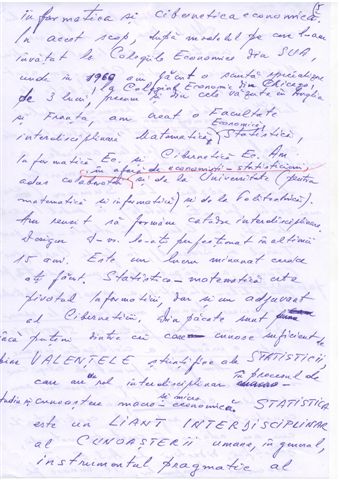 informatica și cibernetica economică.
În acest scop, după modelul pe care l-am
învățat la Colegiile Economice din SUA,
unde în 1969 am făcut o scurtă specializare
la Colegiul Economic din Chicago!
de 3 luni, precum și din cele văzute în Anglia
și Franța, am creat o Facultate
Economică
interdisciplinară Matematică, Statistică,
Informatică Ec. și Cibernetică Ec. Am
în afară de economiști-statisticieni,
adus și de la Universitate (pentru
matematică și informatică) și de la Politehnică).
Am reușit să formăm catedre interdisciplinare,
D-vs. v-ați perfecționat în ultimii
15 ani. Este un lucru minunat ceea ce
ați făcut. Statistica-matematică este
pivotul Informaticii, dar și un adjuvant
al Ciberneticii. Din păcate sunt
încă puțini dintre cei care cunosc suficient de
bine VALENȚELE științifice ale STATISTICII,
în procesul de
care are rol interdisciplinar
și micro
studiu și cunoaștere macro-economică. STATISTICA
este un LIANT INTERDISCIPLINAR
al CUNOAȘTERII umane, în general,
instrumentul pragmatic al